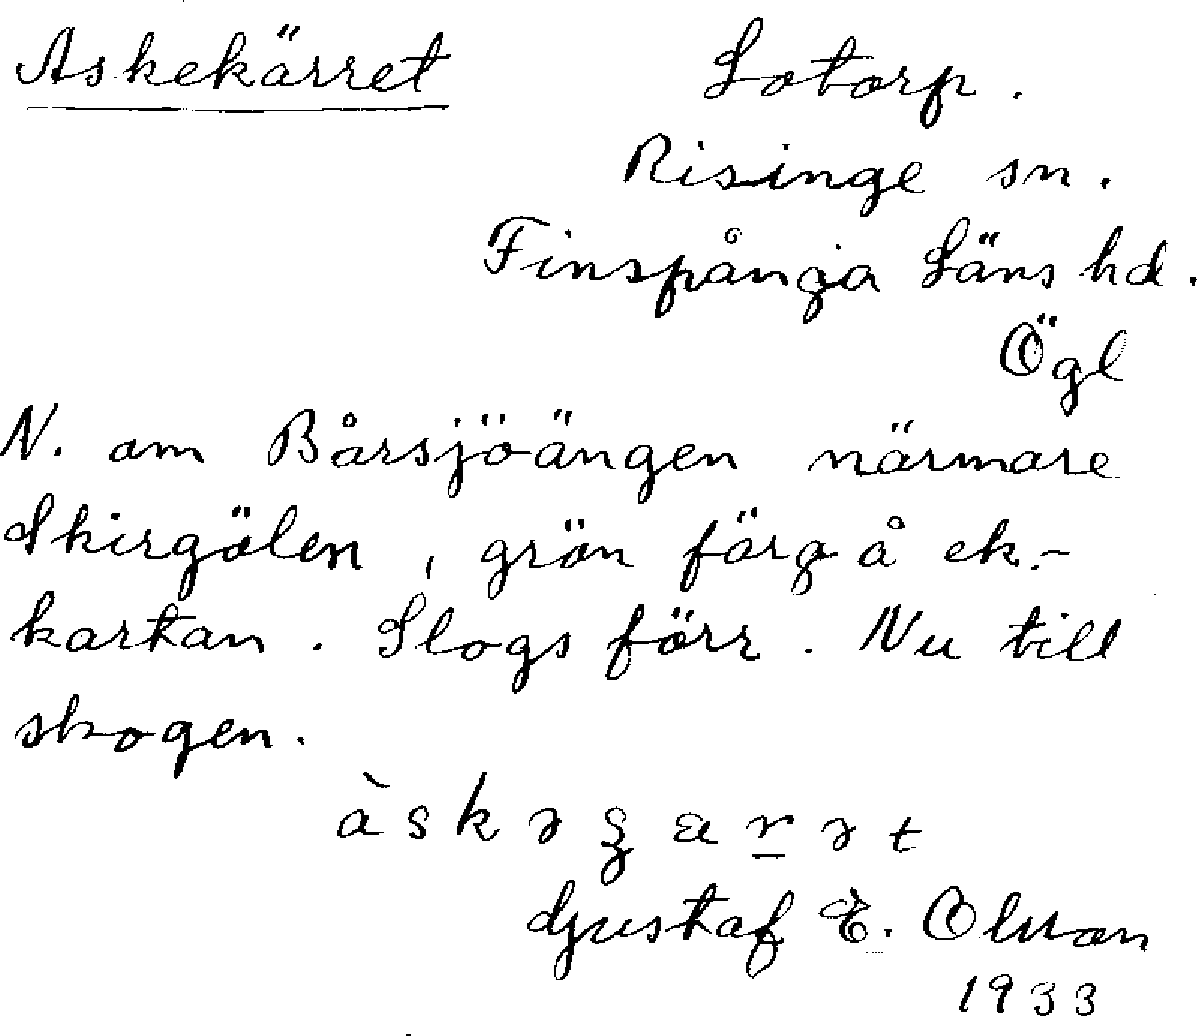 Askekärret
Lotorp.
Risinge sn.
Finspånga Läns hd.
Ögl
N. om Bårsjöängen närmare
Skirgölen, grön färg å ek.-
kartan. Slogs förr. Nu till
skogen.
Gustaf E. Olsson
1933